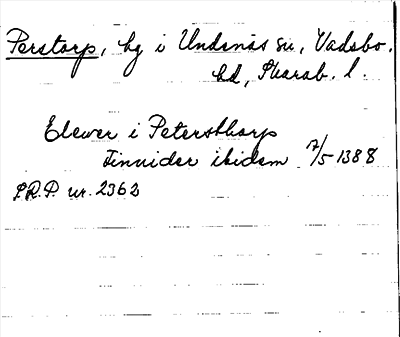 Perstorp, hg i Undenäs sn, Vadsbo
hd, Skarab. l.
Elever i Petersthorp
Finnider ibidem 7/5 1388
S.R.P. nr. 2363